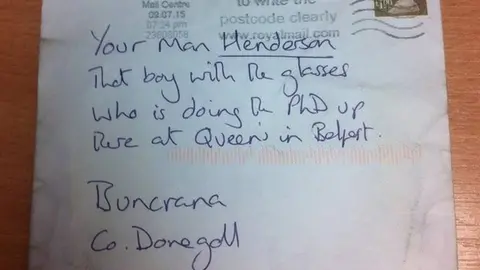 Mail Centre
09.07.15
07:24 pm
23600058
to write the
postcode clearly
www.royalmail.com
Your Man Henderson
That boy with the glasses
who is doing the PhD up
there at Queen's in Belfast.
Buncrana
Co. Donegall